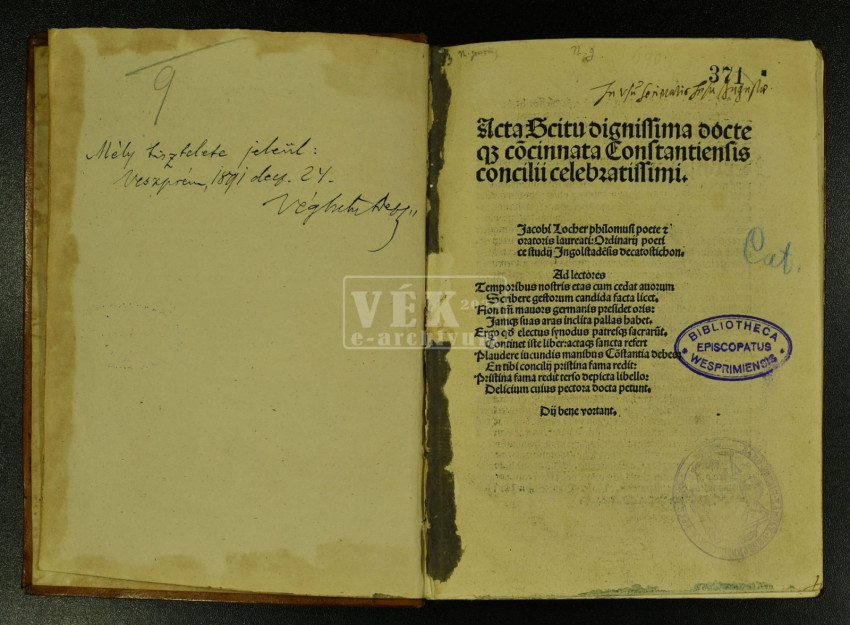 9
Mély tisztelete jeléül:
Veszprém, 1891 dec. 24.
Véghely
371
Acta Scitu dignissima docte
qꝫ cõcinnata Constantiensis
concilii celebratissimi.
Jacobi Locher philomusi poete ⁊
oratoris laureati: Ordinarij poeti
ce studij Ingolstadẽsis decatostichon.
Ad lectores
Temporibus nostris etas cum cedat avorum
Scribere gestorum candida facta licet.
Non tm̃ mavors germanis presidet oris:
Janqꝫ suas aras inclita pallas habet.
Ergo electus synodus patresqꝫ sacrarũt
Continet iste liber: actaqꝫ sancta refert
Plaudere iucundis manibus Cõstantia debes
En tibi concilij pristina fama redit:
Pristina fama redit terso depicta libello:
Delicium cuius pectora docta petunt.
Dij bene vortant.
Cat.
BIBLIOTHECA
EPISCOPATUS
WESPRIMIENSIS
VÉK
e-archivum